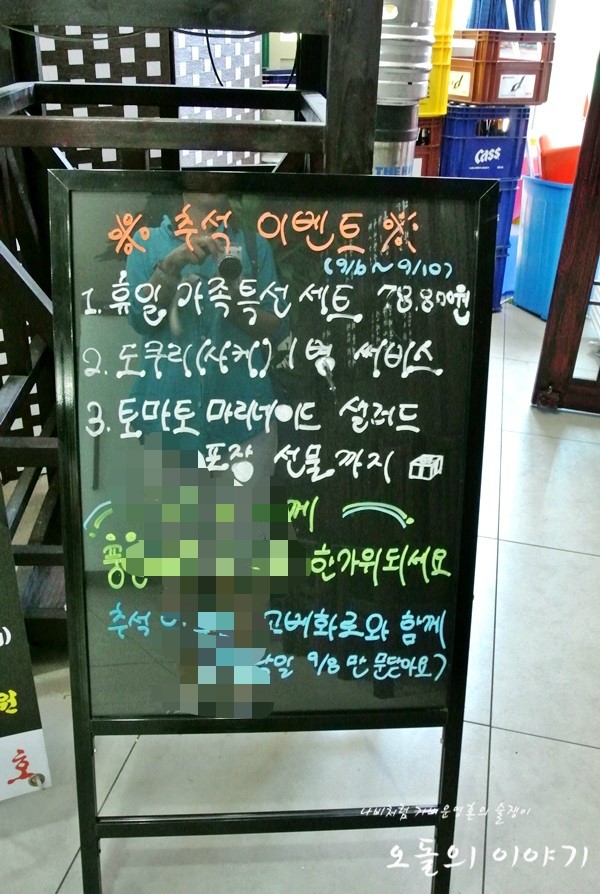 ※ 추석 이벤트 ※
(9/6~9/10)
1. 휴일 가족특선 세트 78.800원
2. 도쿠리(사케) 1병 써비스
3. 토마토 마리네이드 샐러드
포장 선물까지
께
한가위되세요
추석 고베화로와 함께
9/8 만 문닫아요)
cass
원
호
나비처럼 가벼운영혼의 술쟁이
오돌의 이야기